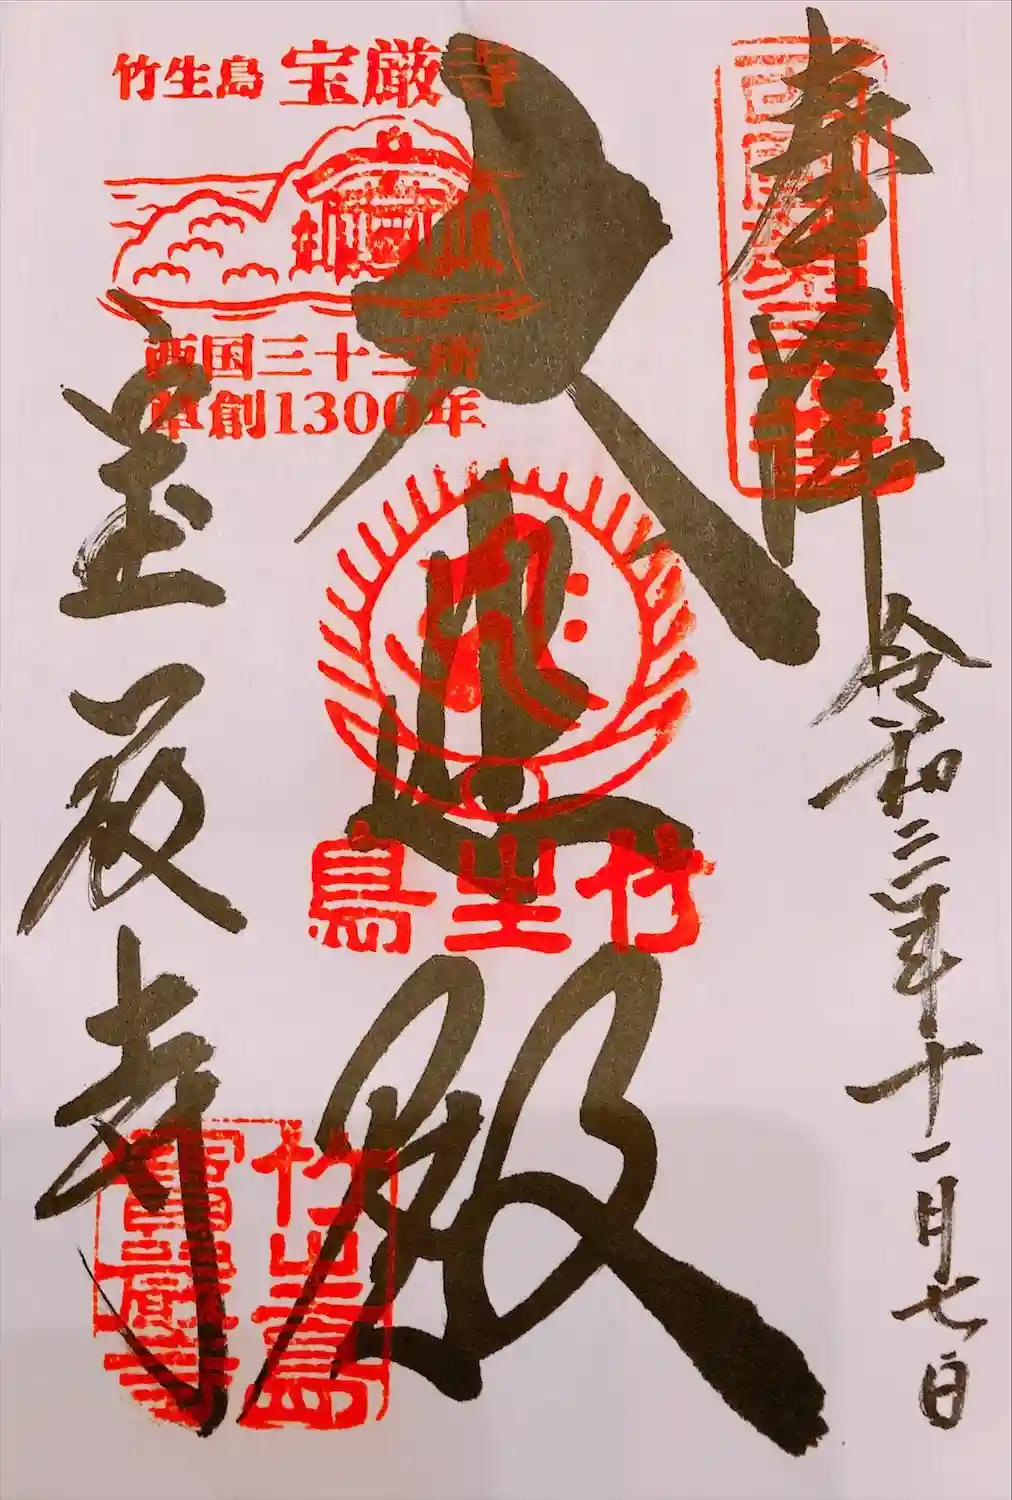 奉拝
西国第三十番
令和三年十一月七日
大悲殿
竹生島
竹生島 宝厳寺
西国三十三所
草創1300年
宝厳寺
竹生島
寶厳寺